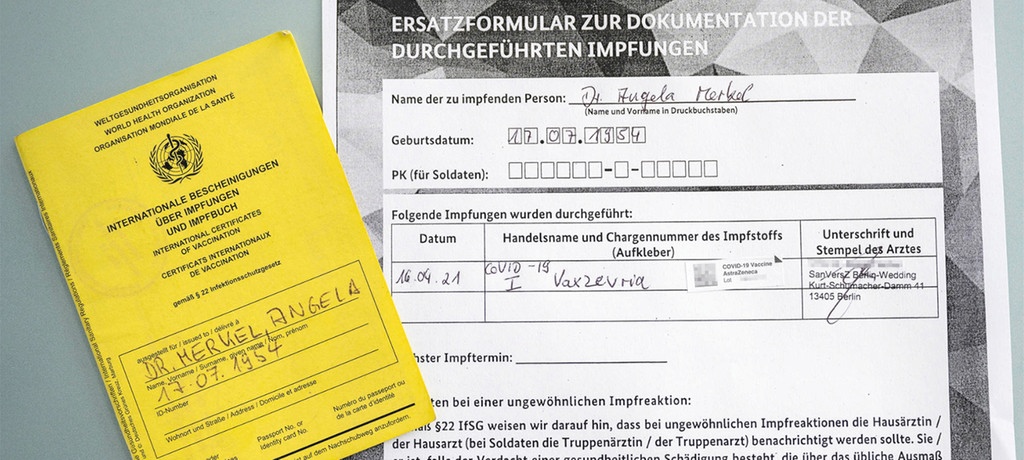 WELTGESUNDHEITSORGANISATION
WORLD HEALTH ORGANIZATION
ORGANISATION MONDIALE DE LA SANTÉ
INTERNATIONALE BESCHEINIGUNGEN
ÜBER IMPFUNGEN
UND IMPFBUCH
INTERNATIONAL CERTIFICATES
OF VACCINATION
CERTIFICATS INTERNATIONAUX
DE VACCINATION
gemäß § 22 Infektionsschutzgesetz
ausgestellt für / issued to / délivré à
DR. MERKEL, ANGELA
Name, Vorname / Surname, given name / Nom, prénom
17.07.1954
ID-Number
Wohnort und Straße / Address / Domicile et adresse
Passport No. or
Identity card No.
Numéro du passeport ou
de la carte d'identité
auf dem Nachschubweg anzufordern.
ERSATZFORMULAR ZUR DOKUMENTATION DER
DURCHGEFÜHRTEN IMPFUNGEN
Name der zu impfenden Person: Dr. Angela Merkel
(Name und Vorname in Druckbuchstaben)
Geburtsdatum: 17.07.1954
PK (für Soldaten): - -
Folgende Impfungen wurden durchgeführt:
Datum
Handelsname und Chargennummer des Impfstoffs
(Aufkleber)
Unterschrift und
Stempel des Arztes
16.04.21
COVID-19
I Vaxzevria
COVID-19 Vaccine
AstraZeneca
Lot
SanVersZ Berlin-Wedding
Kurt-Schumacher-Damm 41
13405 Berlin
Impftermin:
bei einer ungewöhnlichen Impfreaktion:
§22 IfSG weisen wir darauf hin, dass bei ungewöhnlichen Impfreaktionen die Hausärztin /
der Hausarzt (bei Soldaten die Truppenärztin / der Truppenarzt) benachrichtigt werden sollte. Sie /
er ist, falls der Verdacht einer gesundheitlichen Schädigung besteht, die über das übliche Ausmaß